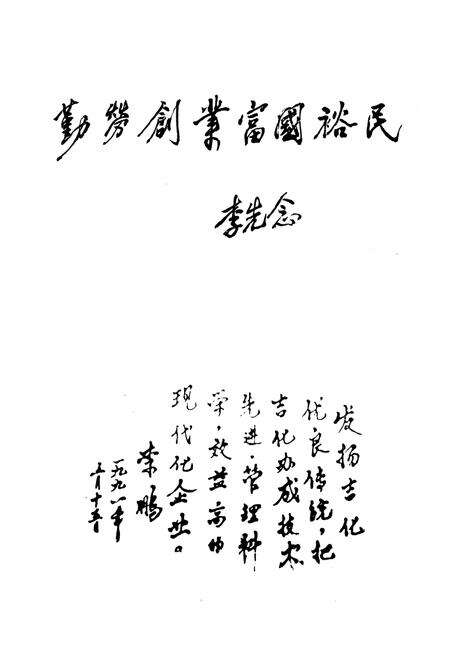 勤勞創業富國裕民
李先念
发扬吉化
优良传统，把
吉化办成技术
先进，管理科
学，效益高的
现代化企业。
李鹏
一九九一年
五月十五日